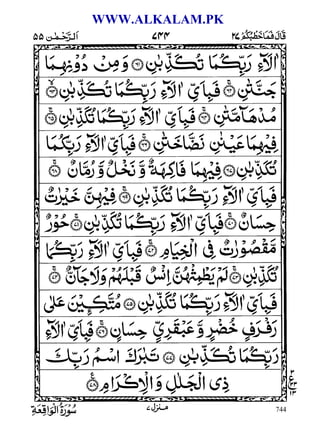 WWW.ALKALAM.PK
قَالَ فَمَا خَطْبُكُمْ ٢٧
٧٤٤
اَلرَّحْمٰن ٥٥
اٰلَآءِ رَبِّكُمَا تُكَذِّبٰنِ ﴿٦١﴾ وَمِنْ دُوْنِهِمَا
جَنَّتٰنِ ﴿٦٢﴾ فَبِاَيِّ اٰلَآءِ رَبِّكُمَا تُكَذِّبٰنِ ﴿٦٣﴾
مُدْهَآمَّتٰنِ ﴿٦٤﴾ فَبِاَيِّ اٰلَآءِ رَبِّكُمَا تُكَذِّبٰنِ ﴿٦٥﴾
فِيْهِمَا عَيْنٰنِ نَضَّاخَتٰنِ ﴿٦٦﴾ فَبِاَيِّ اٰلَآءِ رَبِّكُمَا
تُكَذِّبٰنِ ﴿٦٧﴾ فِيْهِمَا فَاكِهَةٌ وَّ نَخْلٌ وَّ رُمَّانٌ ﴿٦٨﴾
فَبِاَيِّ اٰلَآءِ رَبِّكُمَا تُكَذِّبٰنِ ﴿٦٩﴾ فِيْهِنَّ خَيْرٰتٌ
حِسَانٌ ﴿٧٠﴾ فَبِاَيِّ اٰلَآءِ رَبِّكُمَا تُكَذِّبٰنِ ﴿٧١﴾ حُوْرٌ
مَّقْصُوْرٰتٌ فِي الْخِيَامِ ﴿٧٢﴾ فَبِاَيِّ اٰلَآءِ رَبِّكُمَا
تُكَذِّبٰنِ ﴿٧٣﴾ لَمْ يَطْمِثْهُنَّ اِنْسٌ قَبْلَهُمْ وَلَا جَآنٌّ ﴿٧٤﴾
فَبِاَيِّ اٰلَآءِ رَبِّكُمَا تُكَذِّبٰنِ ﴿٧٥﴾ مُتَّكِـِٕيْنَ عَلٰى
رَفْرَفٍ خُضْرٍ وَّ عَبْقَرِيٍّ حِسَانٍ ﴿٧٦﴾ فَبِاَيِّ اٰلَآءِ
رَبِّكُمَا تُكَذِّبٰنِ ﴿٧٧﴾ تَبٰرَكَ اسْمُ رَبِّكَ
ذِي الْجَلٰلِ وَ الْاِكْرَامِ ﴿٧٨﴾
سُوْرَةُ الْوَاقِعَةِ
منزل ٧
744